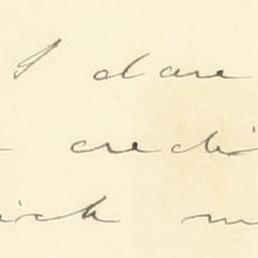 I dare
credi
ich